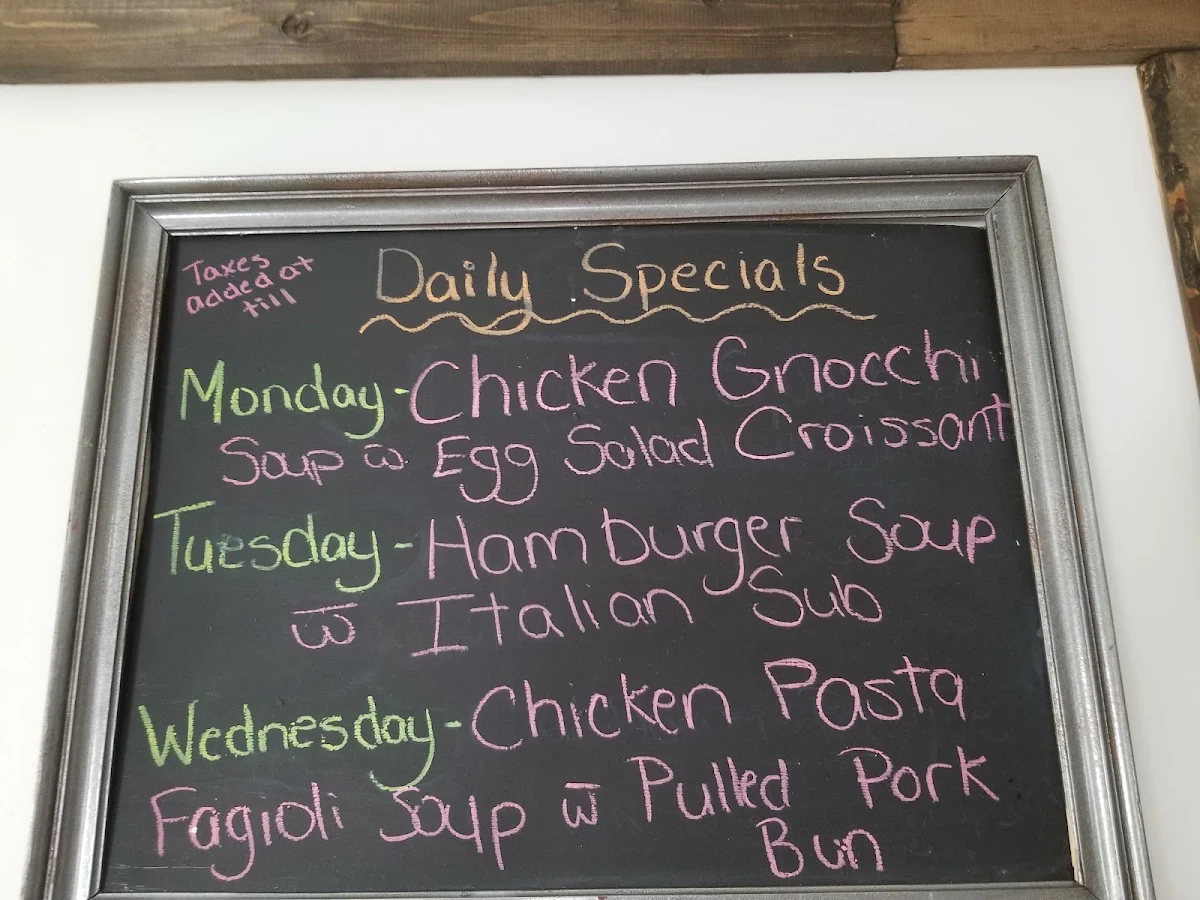 Taxes
added at
till
Daily Specials
Monday - Chicken Gnocchi
Soup w̅ Egg Salad Croissant
Tuesday - Hamburger Soup
w̅ Italian Sub
Wednesday - Chicken Pasta
Fagioli Soup w̅ Pulled Pork
Bun